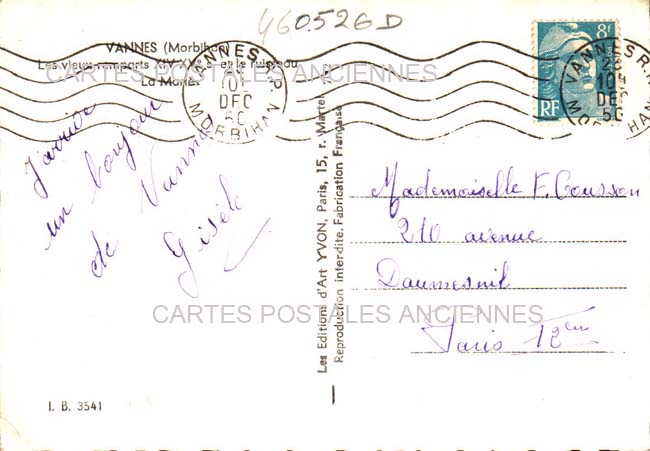 460526D
VANNES (Morbihan)
Les vieux remparts XIV-XVe s. et le ruisseau
La Marle
CARTES POSTALES ANCIENNES
VANNES R.P.
10
DEC
50
MORBIHAN
8f
RF
VANNES R.P.
10
DE
50
MORBIHAN
J'arrive
un bonjour
de Vannes
Gisèle
Les Editions d'Art YVON, Paris, 15, r. Martel
Reproduction interdite. Fabrication Française
Mademoiselle F. Cousson
210 avenue
Daumesnil
Paris 12em
CARTES POSTALES ANCIENNES
I. B. 3541